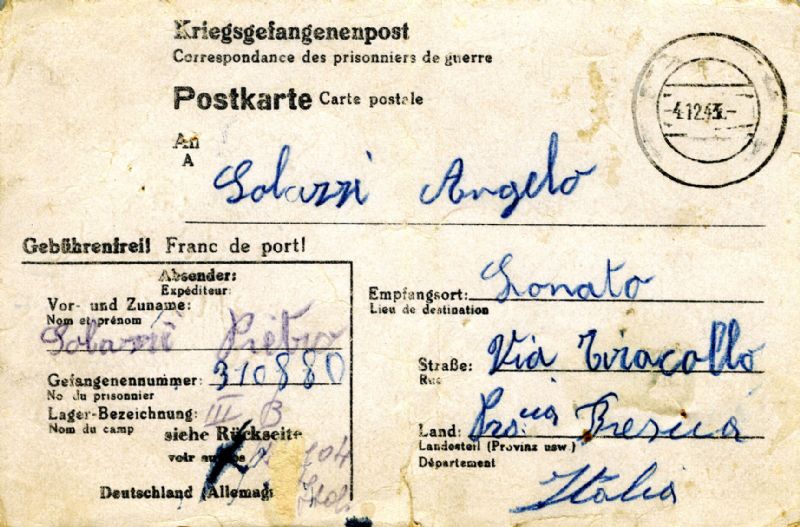 Kriegsgefangenenpost
Correspondance des prisonniers de guerre
Postkarte Carte postale
4.12.43.-
An
A
Solazzi Angelo
Gebührenfrei! Franc de port!
Absender:
Expéditeur:
Vor- und Zuname:
Nom et prénom
Solazzi Pietro
Gefangenennummer: 310880
No du prisonnier
Lager-Bezeichnung: III B
Nom du camp
siehe Rückseite
voir au
104
Deutschland (Allemag
Empfangsort: Lonato
Lieu de destination
Straße: Via Tiracollo
Rue
Land: Brescia
Landesteil (Provinz usw.)
Département
Italia